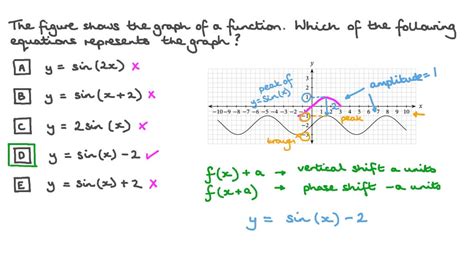 The figure shows the graph of a function. Which of the following
equations represents the graph?
A y = sin(2x) x
B y = sin(x+2) x
C y = 2sin(x) x
D y = sin(x) - 2 ✓
E y = sin(x) + 2 x
peak of
y=sin(x)
amplitude = 1
y
x
-10 -9 -8 -7 -6 -5 -4 -3 -2 -1
1 2 3 4 5 6 7 8 9 10
-2
peak
trough
f(x) + a → vertical shift a units
f(x+a) → phase shift -a units
y = sin(x) - 2